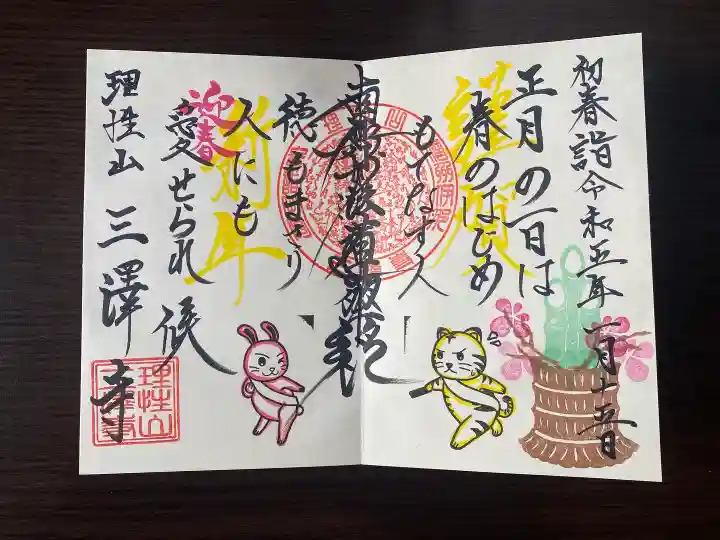 初春詣令和五年一月十五日
謹賀
正月の一日は
春のはじめ
もてなす人
南無妙法蓮華経
徳もまさり
新年
人にも
迎春
愛せられ
候
理性山 三澤寺
理性山
三澤寺